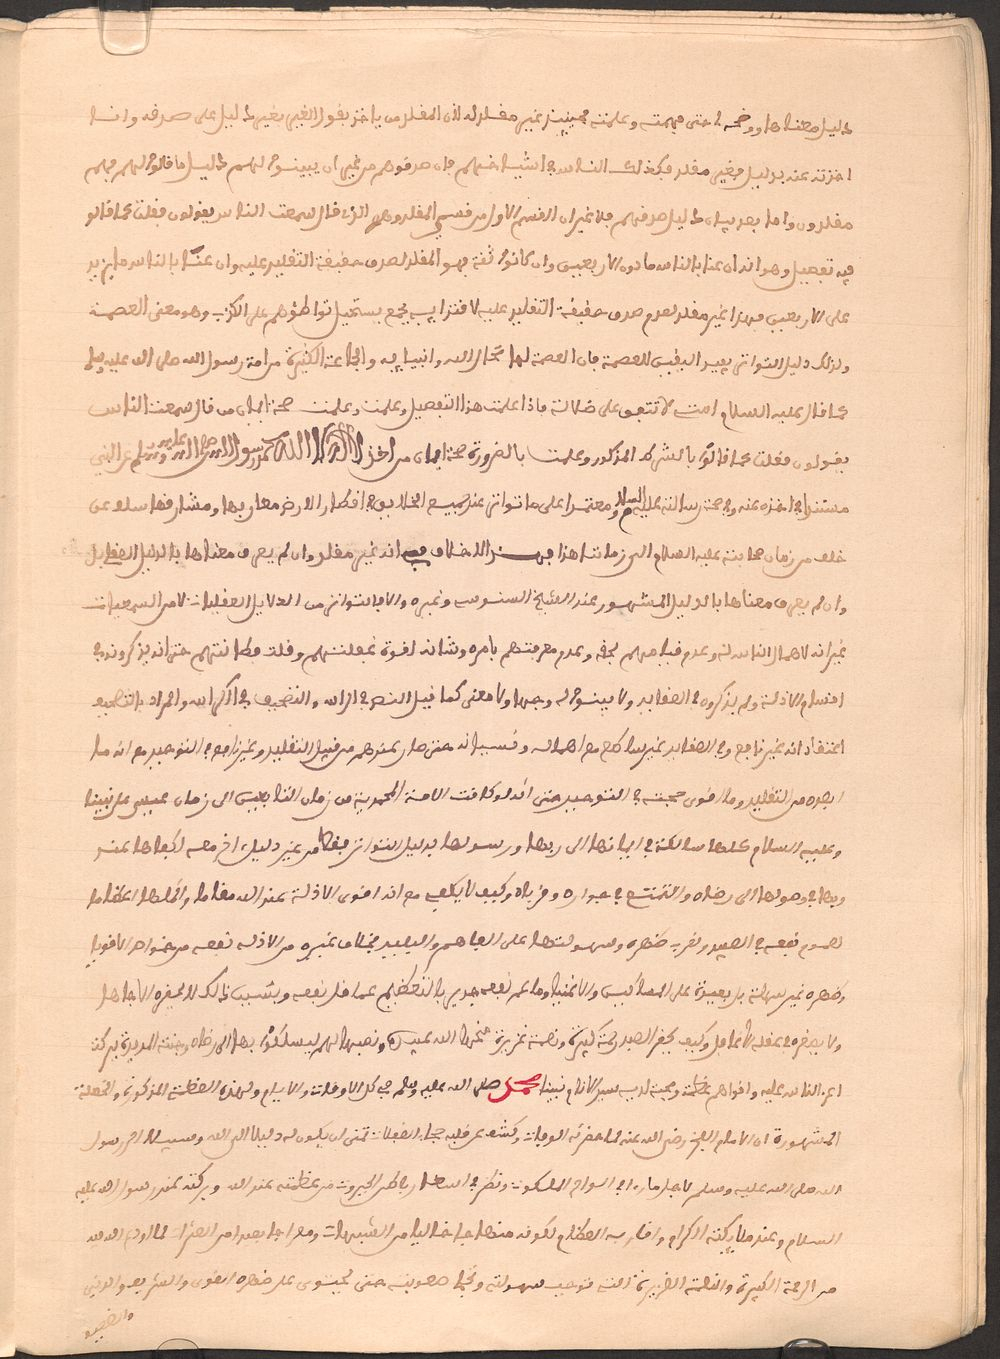 دليل معناها ووضحه لي حتى فهمته وعلمته فحينئذ غير مقلد له لان المقلد من ياخذ بقول الغير بغير دليل على صدقه وانا
اخذته عنه بدليل فغير مقلد فكذلك الناس في اشياخهم فان صدقوهم من غير ان يبينوا لهم دليل ما قالوا لهم فهم
مقلدون واما بعد بيان دليل صدقهم فلا غير ان القسم الاول من قسمي المقلد وهو الذي قال سمعت الناس يقولون فقلت كما قالوا
فيه تفصيل وهو انه ان عنا بالناس ما دون الاربعين وان كانوا ثقة فهو المقلد لصدق حقيقة التقليد عليه وان عنا بالناس ما يزيد
على الاربعين فهذا غير مقلد لعدم صدق حقيقة التقليد عليه لاقترابه بجمع يستحيل تواطؤهم على الكذب وهو معنى العصمة
ولذلك دليل التواتر يفيد اليقين للعصمة فان العصمة لها محال الله وانبيايه والجماعة الكثيرة من امة رسول الله صلى الله عليه وسلم
كما قال عليه السلام امتي لا تتفق على ضلالة فاذا علمت هذا التفصيل وعلمت وعلمت صحة ايمان من قال سمعت الناس
يقولون فقلت كما قالوا بالشرط المذكور وعلمت بالضرورة صحة ايمان من اخذ لا اله الا الله محمد رسول الله صلى الله عليه وسلم عن النبي
مستندا في اخذه عنه وفي صحة رسالته عليه السلام ومعتمدا على ما تواتر عند جميع الخلايق في اقطار الارض مغاربها ومشارقها سلف عن
خلف من زمان صحابته عليه السلام الى زماننا هذا فهذا لا خلاف فيه انه غير مقلد وان لم يعرف معناها بالدليل العقلي بل
وان لم يعرف معناها بالدليل المشهور عند الشيخ السنوسي وغيره والا فالتواتر من الدلايل العقليات لا من السمعيات
غير انه لاهمال الناس له وعدم قيامهم بحقه وعدم معرفتهم بامره وشانه لقوة غفلتهم وقلت فطانتهم حتى انه يذكرونه في
اقسام الادلة ولم يذكروه في العقايد ولا بينوا له وجها ولا معنى كما قيل النص في الراس والتضعيف في الكراس والمراد بالتضعيف
اعتقاد انه غير نافع وفي العقايد غير ساطع مع اهماله ونسيانه حتى صار عندهم من قبيل التقليد وغير نافع في التوحيد مع انه ما
ابعده من التقليد وما اقوى حجته في التوحيد حتى انه لو كانت الامة المحمدية من زمان التابعين الى زمان عيسى على نبينا
وعليه السلام كلها سالكة في ايمانها الى ربها ورسولها بدليل التواتر فقط من غير دليل اخر معه لكفاها عند
ربها في وصولها الى رضاه والتمتع في جواره وقرباه وكيف لا يكفي مع انه اقوى الادلة عند الله مقاما واكملها انعاما
لعموم نفعه في العبيد وتقريب ضهره وسهولتها على الفاهم والبليد بخلاف غيره من الادلة نفعه من خواص الاقويا
وضهره غير سهلة بل بعيدة على المساكين والاغنيا وما عم نفعه جدير بالتعظيم عما قل نفعه وبسبب ذالك لا يحقره الا جاهل
ولا يصغره في عقله الا غافل وكيف يحقر العبد رحمة كبيرة ونعمة غزيرة منحها الله عبيده ونصبها لهم ليسلكوا بها الى رضاه وجنته المديدة ببركة
اعز الناس عليه واقواهم عظمة ومحبة لديه سيد الانام نبينا محمد صلى الله عليه وسلم في كل الاوقات والايام ولهذه العظمة المذكورة والخصلة
المشهورة ان الامام البلخي رضي الله عنه لما حضرته الوفات وكشف عن قلبه حجاب الغفلات تمنى ان يكون له دليلا الى الله وسبيلا الى رسول
الله صلى الله عليه وسلم لاجل ما راى في الواح الملكوت ونظر في استار باطن الجبروت من عظمته عند الله وبركته عند رسول الله عليه
السلام وعند ملايكته الكرام واقاربه العظام لكونه منهاجا خاليا من الشبهات ومعراجا بعيدا من العثرات لما اودع الله فيه
من الرحمة الكبيرة والنعمة الغزيرة التي توجب سهولته وتجلي صعوبته حتى يستوي على ضهره القوي والشريف والدني
والضعيف